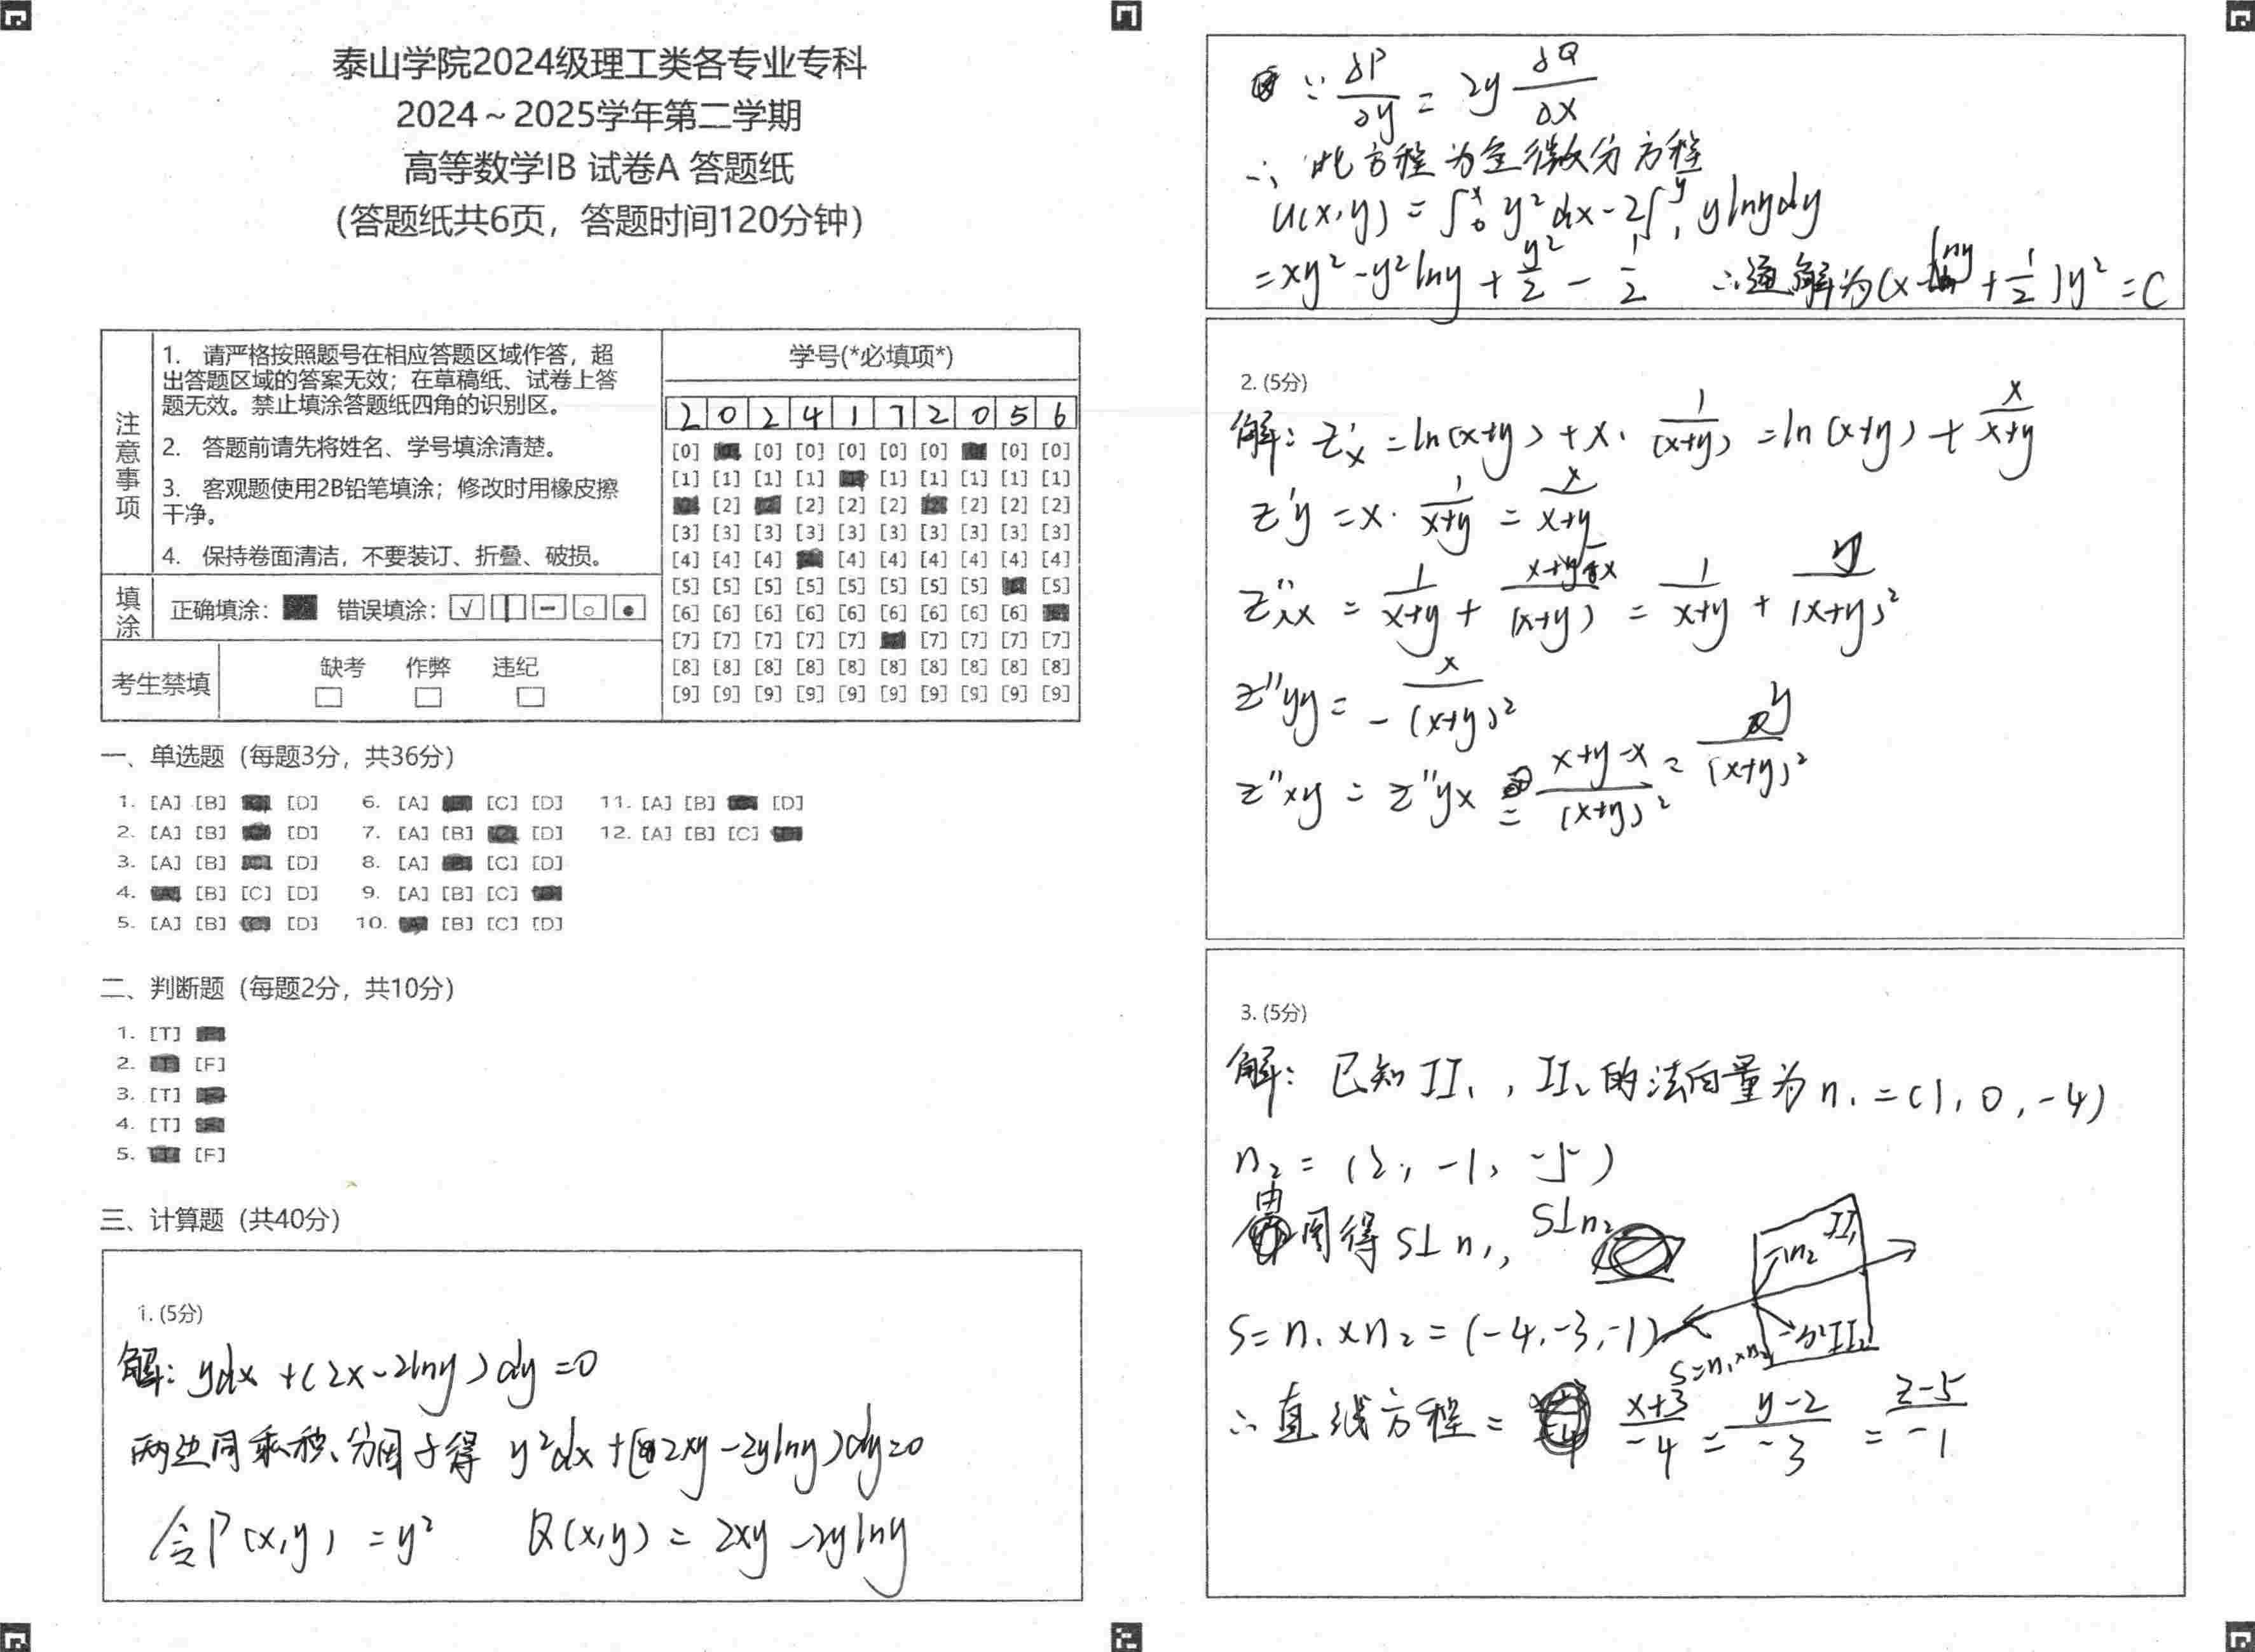 泰山学院2024级理工类各专业专科
2024～2025学年第二学期
高等数学IB 试卷A 答题纸
（答题纸共6页，答题时间120分钟）
注意事项
1. 请严格按照题号在相应答题区域作答，超
出答题区域的答案无效；在草稿纸、试卷上答
题无效。禁止填涂答题纸四角的识别区。
2. 答题前请先将姓名、学号填涂清楚。
3. 客观题使用2B铅笔填涂；修改时用橡皮擦
干净。
4. 保持卷面清洁，不要装订、折叠、破损。
填涂
正确填涂： 错误填涂：
考生禁填
缺考 作弊 违纪
学号(*必填项*)
2 0 2 4 1 7 2 0 5 6
[0] [0] [0] [0] [0] [0] [0] [0]
[1] [1] [1] [1] [1] [1] [1] [1] [1]
[2] [2] [2] [2] [2] [2] [2]
[3] [3] [3] [3] [3] [3] [3] [3] [3] [3]
[4] [4] [4] [4] [4] [4] [4] [4] [4]
[5] [5] [5] [5] [5] [5] [5] [5] [5]
[6] [6] [6] [6] [6] [6] [6] [6] [6]
[7] [7] [7] [7] [7] [7] [7] [7] [7]
[8] [8] [8] [8] [8] [8] [8] [8] [8] [8]
[9] [9] [9] [9] [9] [9] [9] [9] [9] [9]
一、单选题（每题3分，共36分）
1. [A] [B] [D] 6. [A] [C] [D] 11. [A] [B] [D]
2. [A] [B] [D] 7. [A] [B] [D] 12. [A] [B] [C]
3. [A] [B] [D] 8. [A] [C] [D]
4. [B] [C] [D] 9. [A] [B] [C]
5. [A] [B] [D] 10. [B] [C] [D]
二、判断题（每题2分，共10分）
1. [T]
2. [F]
3. [T]
4. [T]
5. [F]
三、计算题（共40分）
1. (5分)
解: ydx+(2x-2lny)dy=0
两边同乘积分因子得 y²dx+(2xy-2ylny)dy=0
令P(x,y)=y² Q(x,y)=2xy-2ylny
∵ ∂P/∂y = 2y ∂Q/∂x
∴此方程为全微分方程
u(x,y)=∫₀ˣ y²dx-2∫₁ʸ ylnydy
=xy²-y²lny+y²/2-1/2 ∴通解为(x-lny+1/2)y²=C
2. (5分)
解: z'x=ln(x+y)+x·1/(x+y)=ln(x+y)+x/(x+y)
z'y=x·1/(x+y)=x/(x+y)
z''xx=1/(x+y)+(x+y-x)/(x+y)=1/(x+y)+y/(x+y)²
z''yy=-x/(x+y)²
z''xy=z''yx=(x+y-x)/(x+y)²=y/(x+y)²
3. (5分)
解: 已知II₁,II₂的法向量为n₁=(1,0,-4)
n₂=(2,-1,-5)
由图得S⊥n₁, S⊥n₂
II₁
n₂
S=n₁×n₂=(-4,-3,-1)
II₂
S=n₁×n₂
∴直线方程= (x+3)/-4=(y-2)/-3=(z-5)/-1